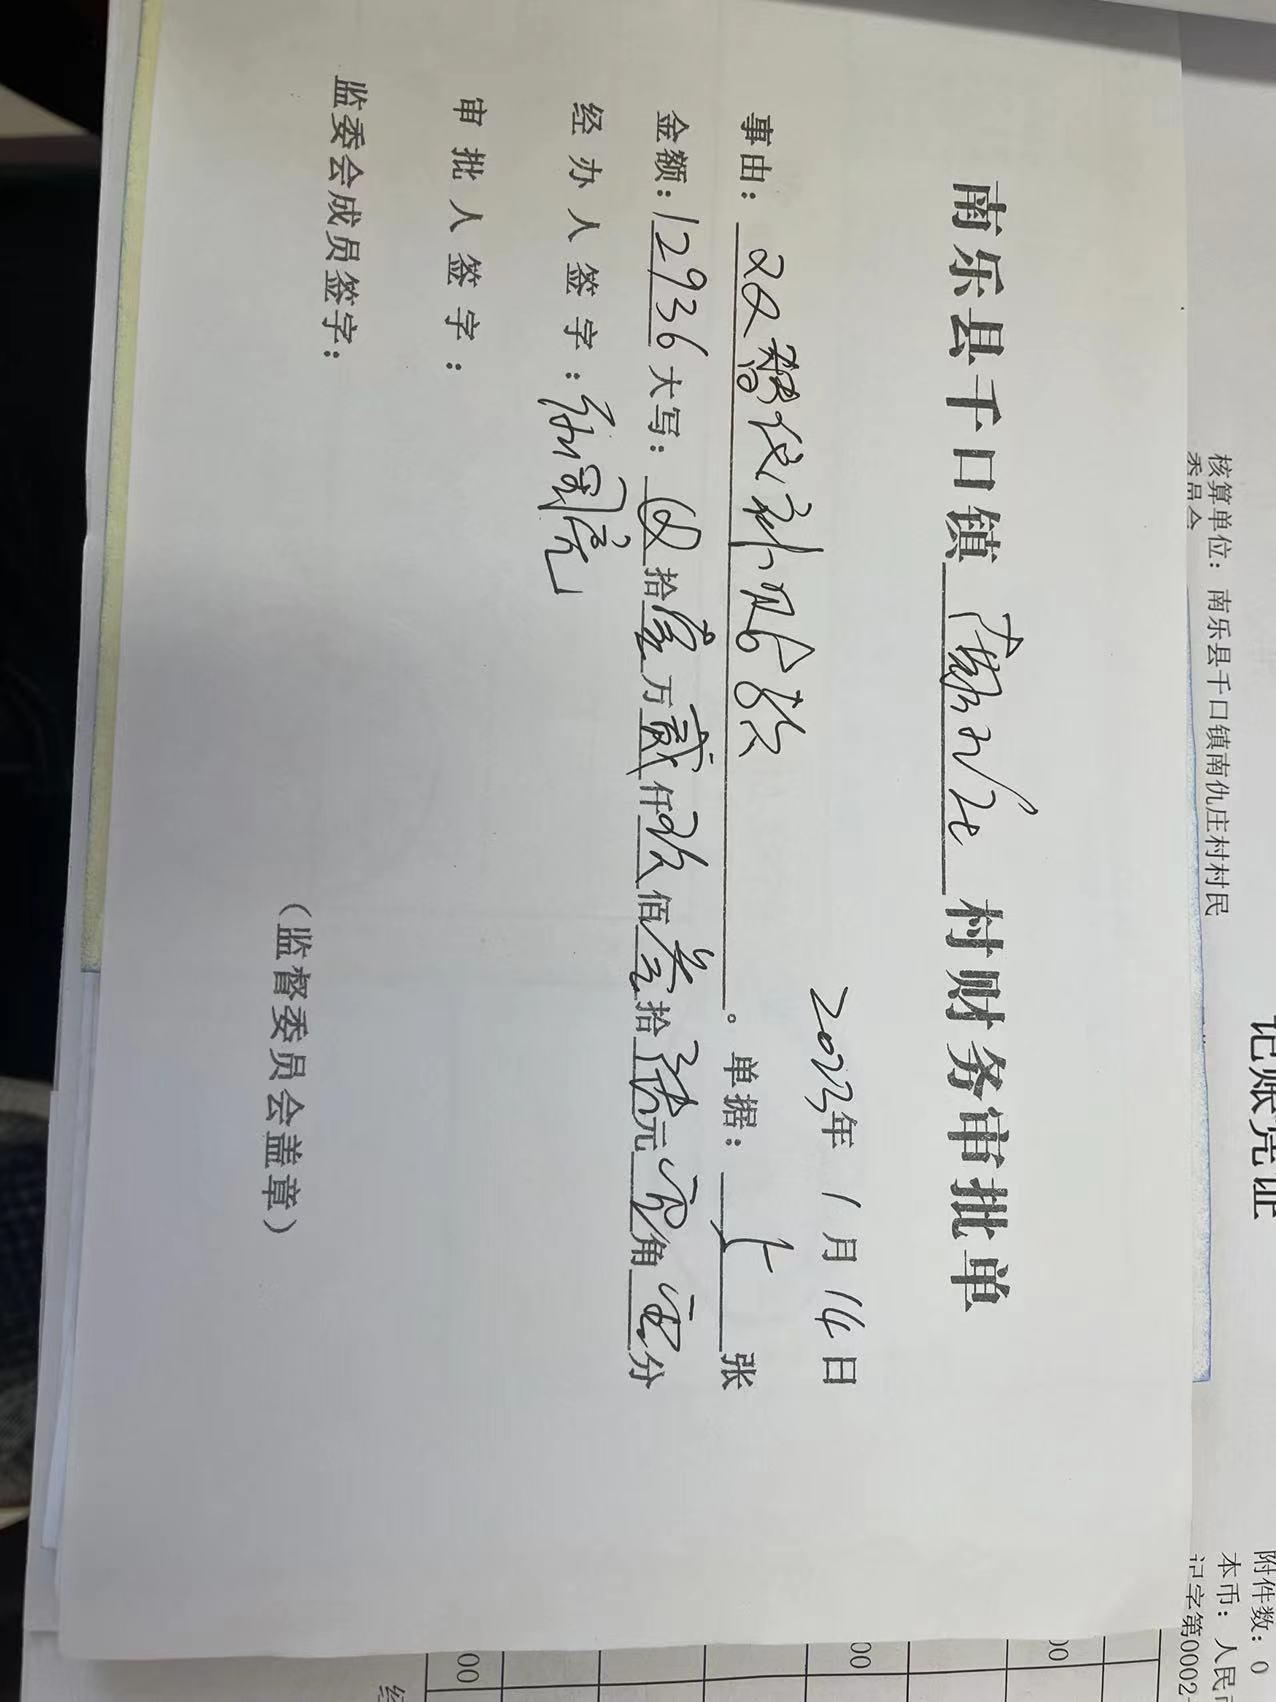 南乐县千口镇南仇庄村财务审批单
2023年1月14日
事由:双替代补贴款。单据:1张
金额:12936大写:⊗拾壹万贰仟玖佰叁拾陆元零角零分
经办人签字:
审批人签字:
监委会成员签字:
(监督委员会盖章)
记账凭证
核算单位:南乐县千口镇南仇庄村村民
委员会
附件数:0
本币:人民币
记字第0002
00
00
00